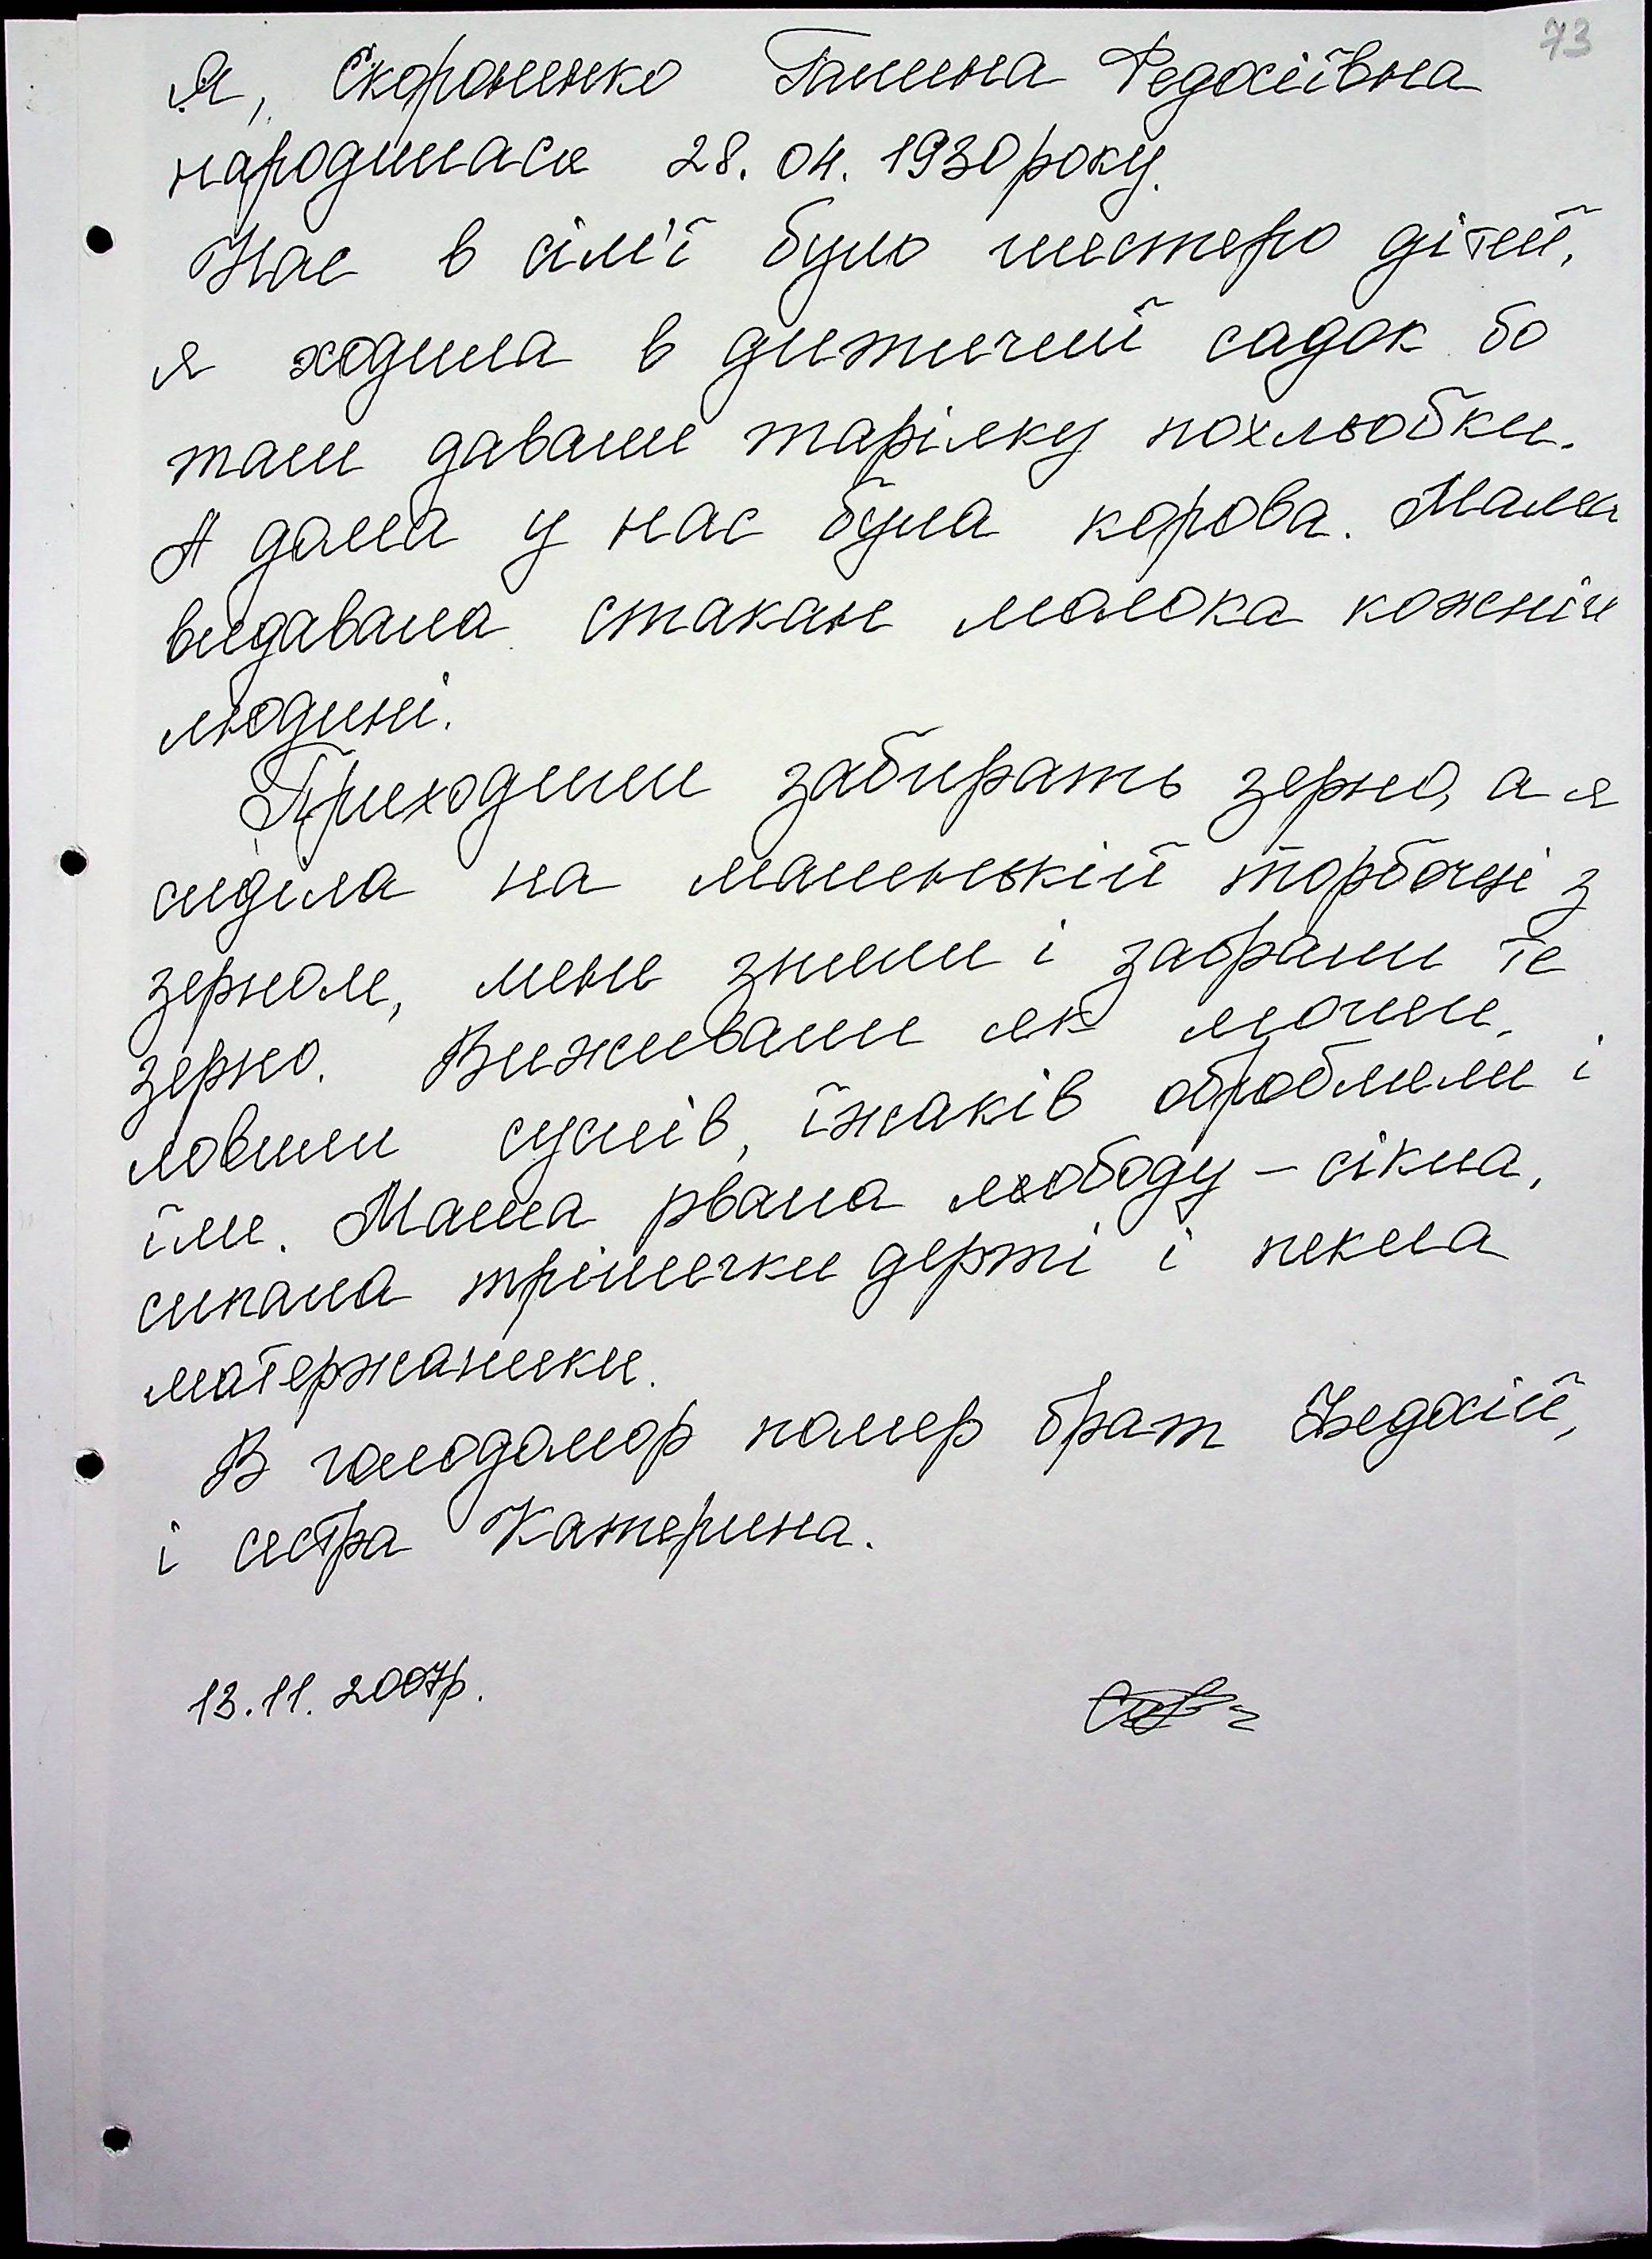 73
Я, Скороненко Галина Федосіївна
народилася 28.04.1930 року.
Нас в сім'ї було шестеро дітей,
я ходила в дитячий садок бо
там давали тарілку похльобки.
А дома у нас була корова. Мама
видавала стакан молока кожній
людині.
Приходили забирать зерно, а я
сиділа на маленькій торбочці з
зерном, мене зняли і забрали те
зерно. Виживали як могли,
ловили суслів, їжаків обробляли і
їли. Мама рвала льободу – сікла,
сипала трішечки дерті і пекла
матержаники.
В голодомор помер брат Федосій,
і сестра Катерина.
13.11.2007р.